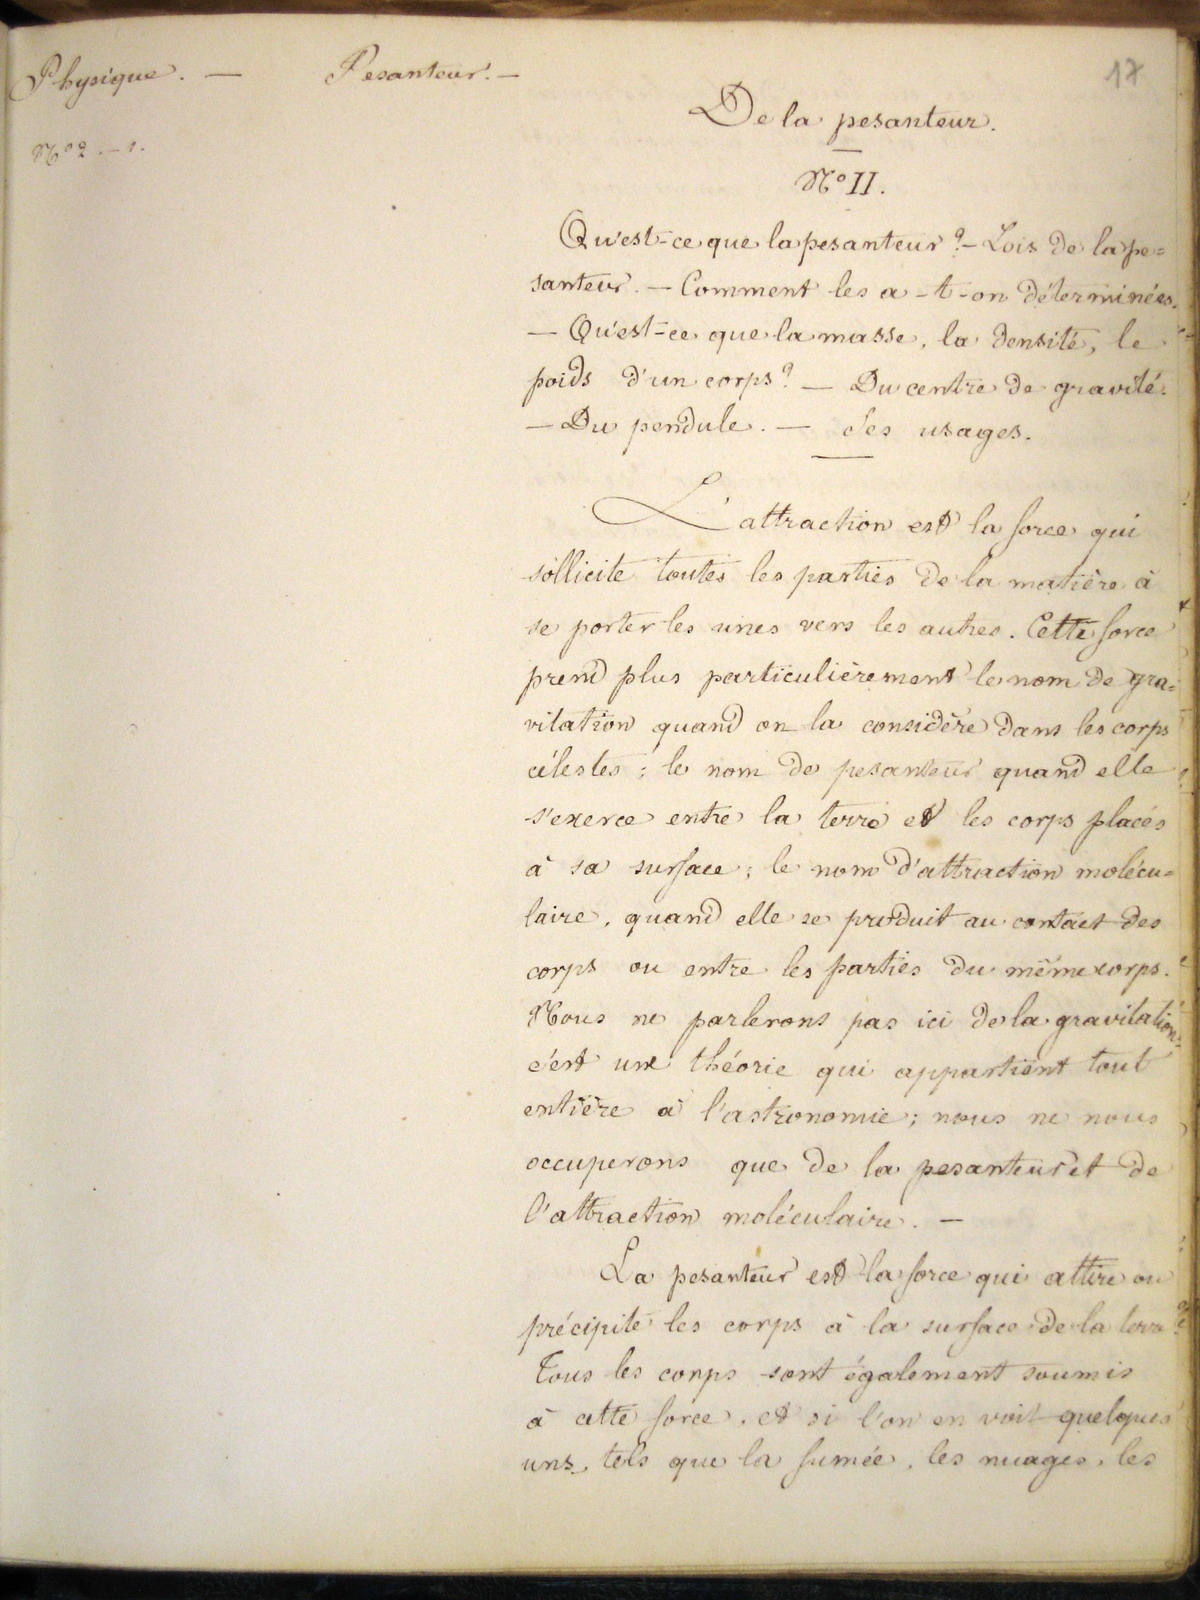 Physique. — Pesanteur. —
17
Nº 2. — 1.
De la pesanteur.
Nº II.
Qu'est-ce que la pesanteur ? — Lois de la pe=
santeur. — Comment les a-t-on déterminées.
— Qu'est-ce que la masse, la densité, le
poids d'un corps ? — Du centre de gravité.
— Du pendule. — Ses usages.
L'attraction est la force qui
sollicite toutes les parties de la matière à
se porter les unes vers les autres. Cette force
prend plus particulièrement le nom de gra=
vitation quand on la considère dans les corps
célestes ; le nom de pesanteur quand elle
s'exerce entre la terre et les corps placés
à sa surface ; le nom d'attraction molécu=
laire, quand elle se produit au contact des
corps ou entre les parties du même corps.
Nous ne parlerons pas ici de la gravitation
c'est une théorie qui appartient tout
entière à l'astronomie ; nous ne nous
occuperons que de la pesanteur et de
l'attraction moléculaire. —
La pesanteur est la force qui attire ou
précipite les corps à la surface de la terre
Tous les corps sont également soumis
à cette force, et si l'on en voit quelques
uns, tels que la fumée, les nuages, les